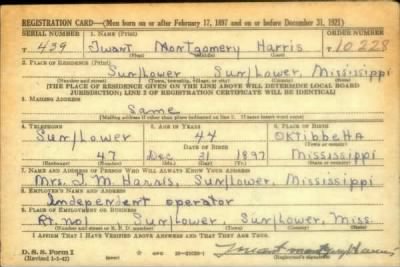 REGISTRATION CARD—(Men born on or after February 17, 1897 and on or before December 31, 1921)
SERIAL NUMBER 1. NAME (Print) ORDER NUMBER
T 439 Twant Montgomery Harris T10228
(First) (Middle) (Last)
2. PLACE OF RESIDENCE (Print)
Sunflower Sunflower, Mississippi
(Number and street) (Town, township, village, or city) (County) (State)
[THE PLACE OF RESIDENCE GIVEN ON THE LINE ABOVE WILL DETERMINE LOCAL BOARD
JURISDICTION; LINE 2 OF REGISTRATION CERTIFICATE WILL BE IDENTICAL]
3. MAILING ADDRESS
Same
[Mailing address if other than place indicated on line 2. If same insert word same]
4. TELEPHONE 5. AGE IN YEARS 6. PLACE OF BIRTH
Sunflower 44 OKTibbeHA
DATE OF BIRTH
47 Dec 31 1897 Mississippi
(Exchange) (Number) (Mo.) (Day) (Yr.) (State or country)
7. NAME AND ADDRESS OF PERSON WHO WILL ALWAYS KNOW YOUR ADDRESS
Mrs. T. M. Harris, Sunflower, Mississippi
8. EMPLOYER'S NAME AND ADDRESS
Independent operator
9. PLACE OF EMPLOYMENT OR BUSINESS
Rt. no 1 Sunflower Sunflower, Miss
(Number and street or R. F. D. number) (Town) (County) (State)
I AFFIRM THAT I HAVE VERIFIED ABOVE ANSWERS AND THAT THEY ARE TRUE.
D. S. S. Form 1
(Revised 1-1-42) (over) (Registrant's signature)